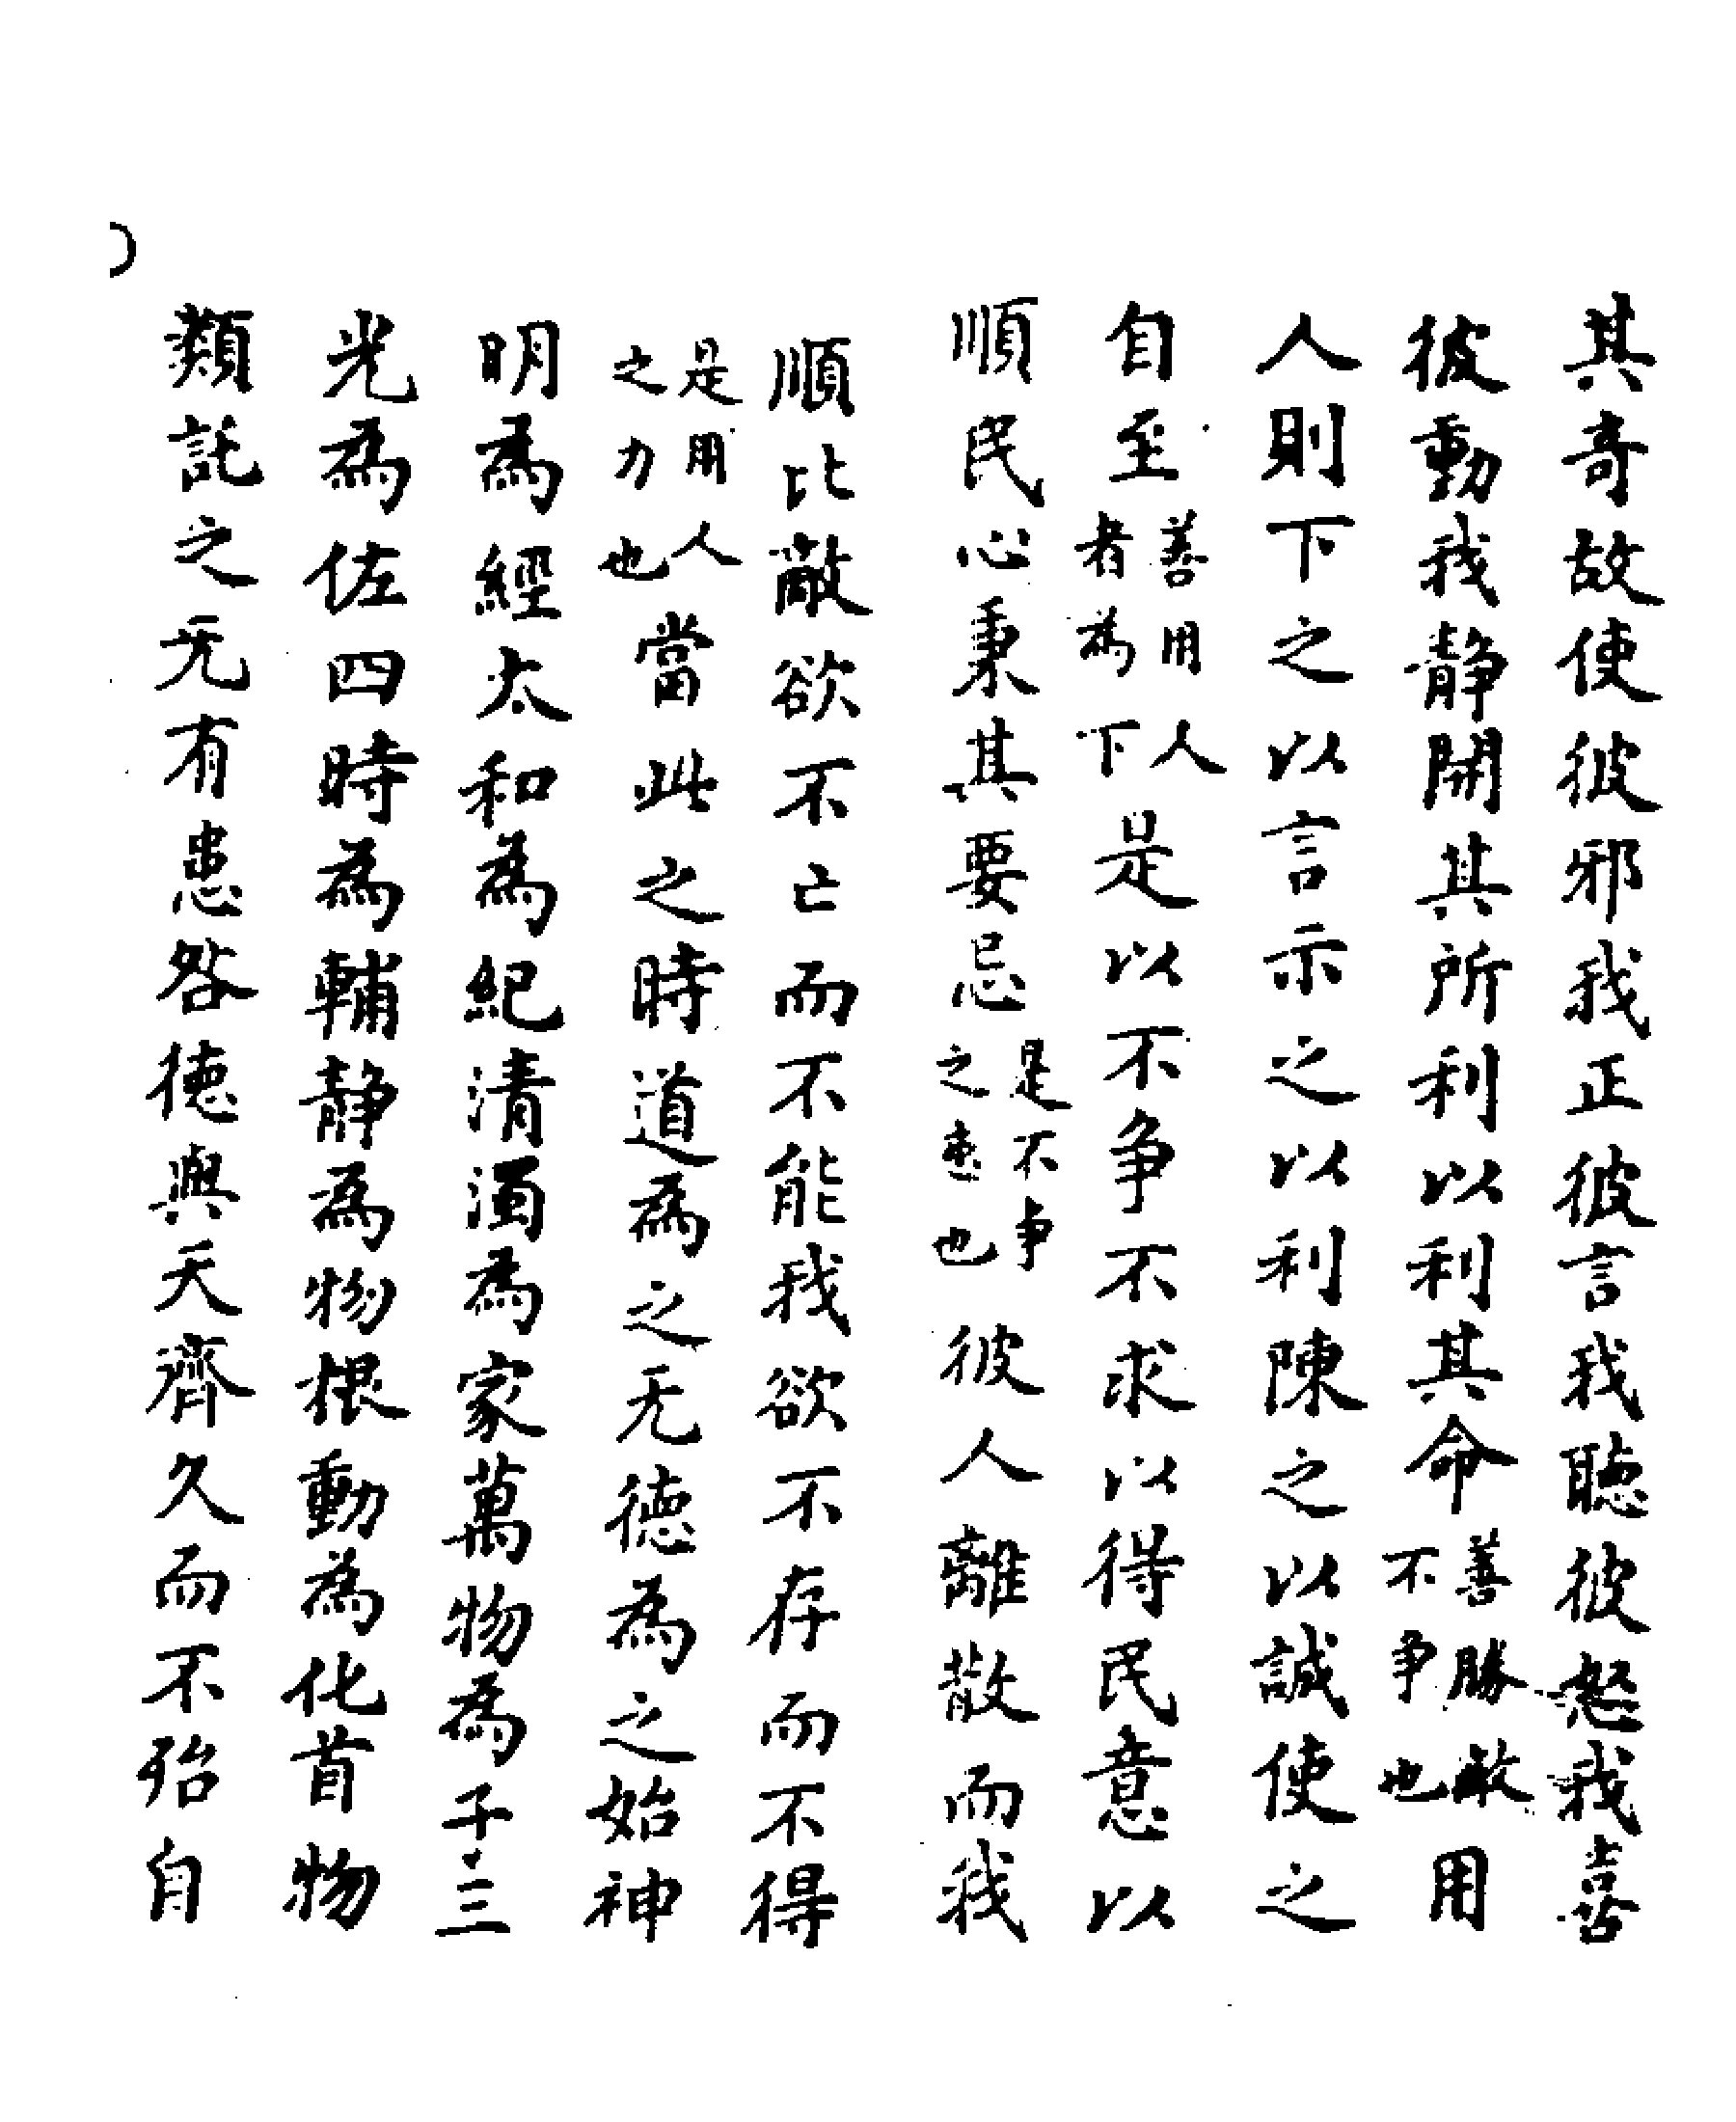 其奇故使彼邪我正彼言我聽彼怒我喜
彼動我静開其所利以利其命善勝敵不争也用
人則下之以言示之以利陳之以誠使之
自至善用人者為下是以不争不求以得民意以
順民心秉其要忌是不争之恵也彼人離散而我
順比敵欲不亡而不能我欲不存而不得
是用人之力也當此之時道為之无徳為之始神
明為經太和為紀清濁為家萬物為子三
光為佐四時為輔静為物根動為化首物
類託之无有患咎徳與天齊久而不殆自